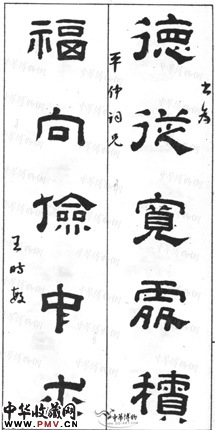 書為
德從寬處積
平仲詞兄
福向儉中求
王時敏
中華博物
中华收藏网
www.PMV.CN